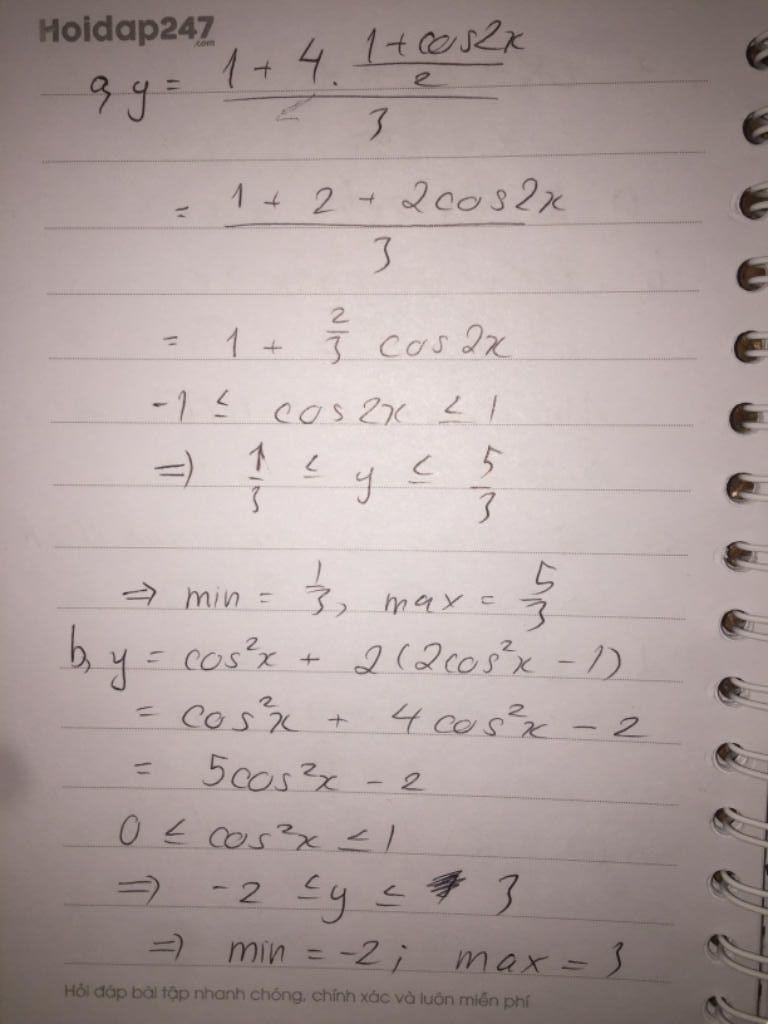 Hoidap247
.com
a, y = (1 + 4 . (1 + cos2x)/2)/3
= (1 + 2 + 2cos2x)/3
= 1 + 2/3 cos2x
-1 ≤ cos2x ≤ 1
=> 1/3 ≤ y ≤ 5/3
=> min = 1/3, max = 5/3
b, y = cos²x + 2(2cos²x - 1)
= cos²x + 4cos²x - 2
= 5cos²x - 2
0 ≤ cos²x ≤ 1
=> -2 ≤ y ≤ 3
=> min = -2; max = 3
Hỏi đáp bài tập nhanh chóng, chính xác và luôn miễn phí